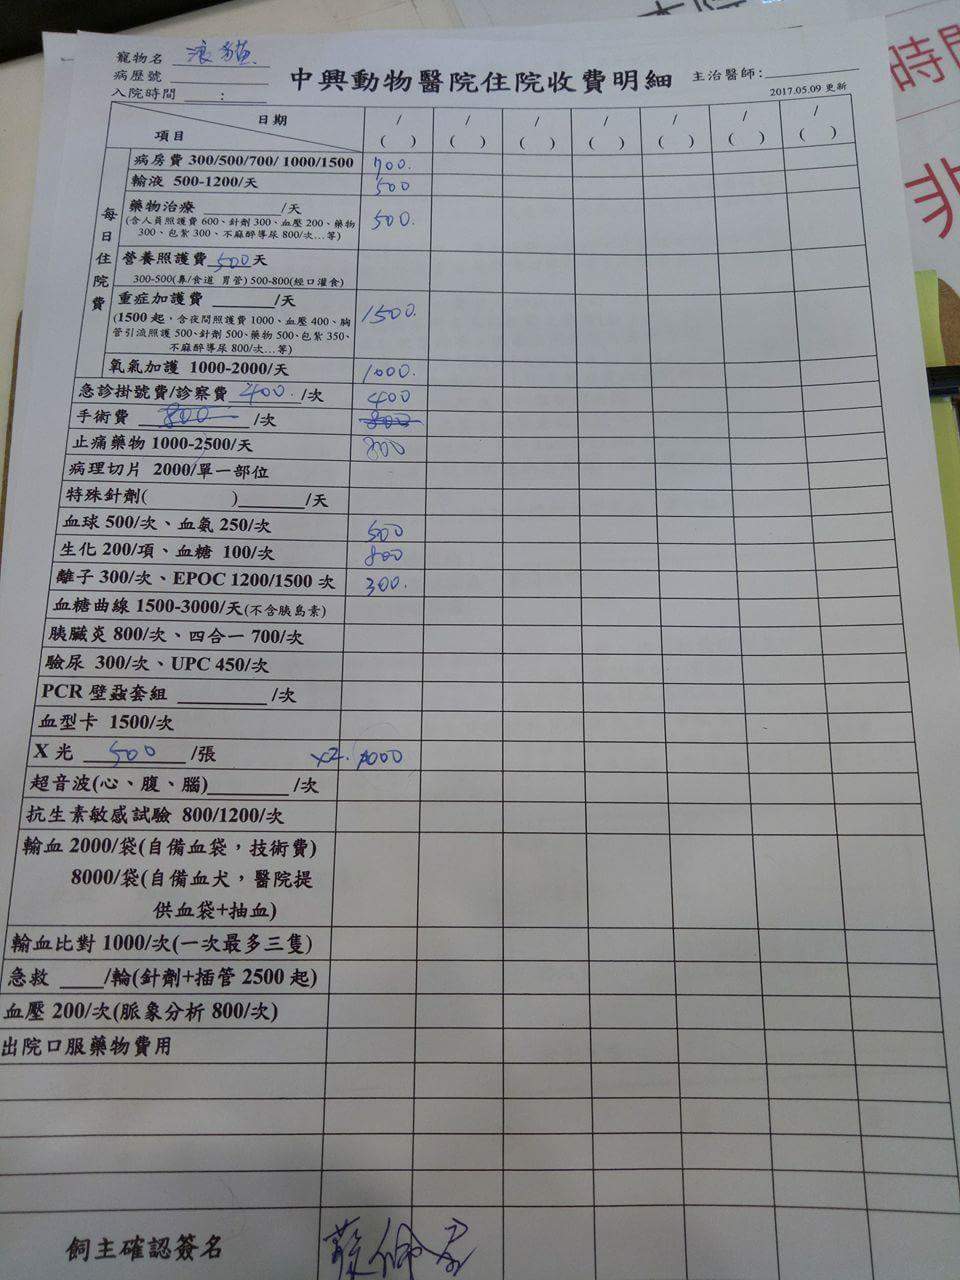 寵物名 浪貓
病歷號
入院時間 :
中興動物醫院住院收費明細
主治醫師:
2017.05.09 更新
日期
項目
/ / / / / / /
( ) ( ) ( ) ( ) ( ) ( ) ( )
每日住院費
病房費 300/500/700/ 1000/1500 700.
輸液 500-1200/天 500
藥物治療 /天 500.
(含人員照護費 600、針劑 300、血壓 200、藥物
300、包紮 300、不麻醉導尿 800/次…等)
營養照護費 500 天
300-500(鼻/食道 胃管) 500-800(經口灌食)
重症加護費 /天 1500.
(1500 起,含夜間照護費 1000、血壓 400、胸
管引流照護 500、針劑 500、藥物 500、包紮 350、
不麻醉導尿 800/次…等)
氧氣加護 1000-2000/天 1000.
急診掛號費/診察費 400. /次 400
手術費 800 /次 800
止痛藥物 1000-2500/天 800
病理切片 2000/單一部位
特殊針劑( ) /天
血球 500/次、血氨 250/次 500
生化 200/項、血糖 100/次 800
離子 300/次、EPOC 1200/1500 次 300.
血糖曲線 1500-3000/天(不含胰島素)
胰臟炎 800/次、四合一 700/次
驗尿 300/次、UPC 450/次
PCR 壁蝨套組 /次
血型卡 1500/次
X 光 500 /張 x2. 1000
超音波(心、腹、腦) /次
抗生素敏感試驗 800/1200/次
輸血 2000/袋(自備血袋,技術費)
8000/袋(自備血犬,醫院提
供血袋+抽血)
輸血比對 1000/次(一次最多三隻)
急救 /輪(針劑+插管 2500 起)
血壓 200/次(脈象分析 800/次)
出院口服藥物費用
飼主確認簽名
時間
非